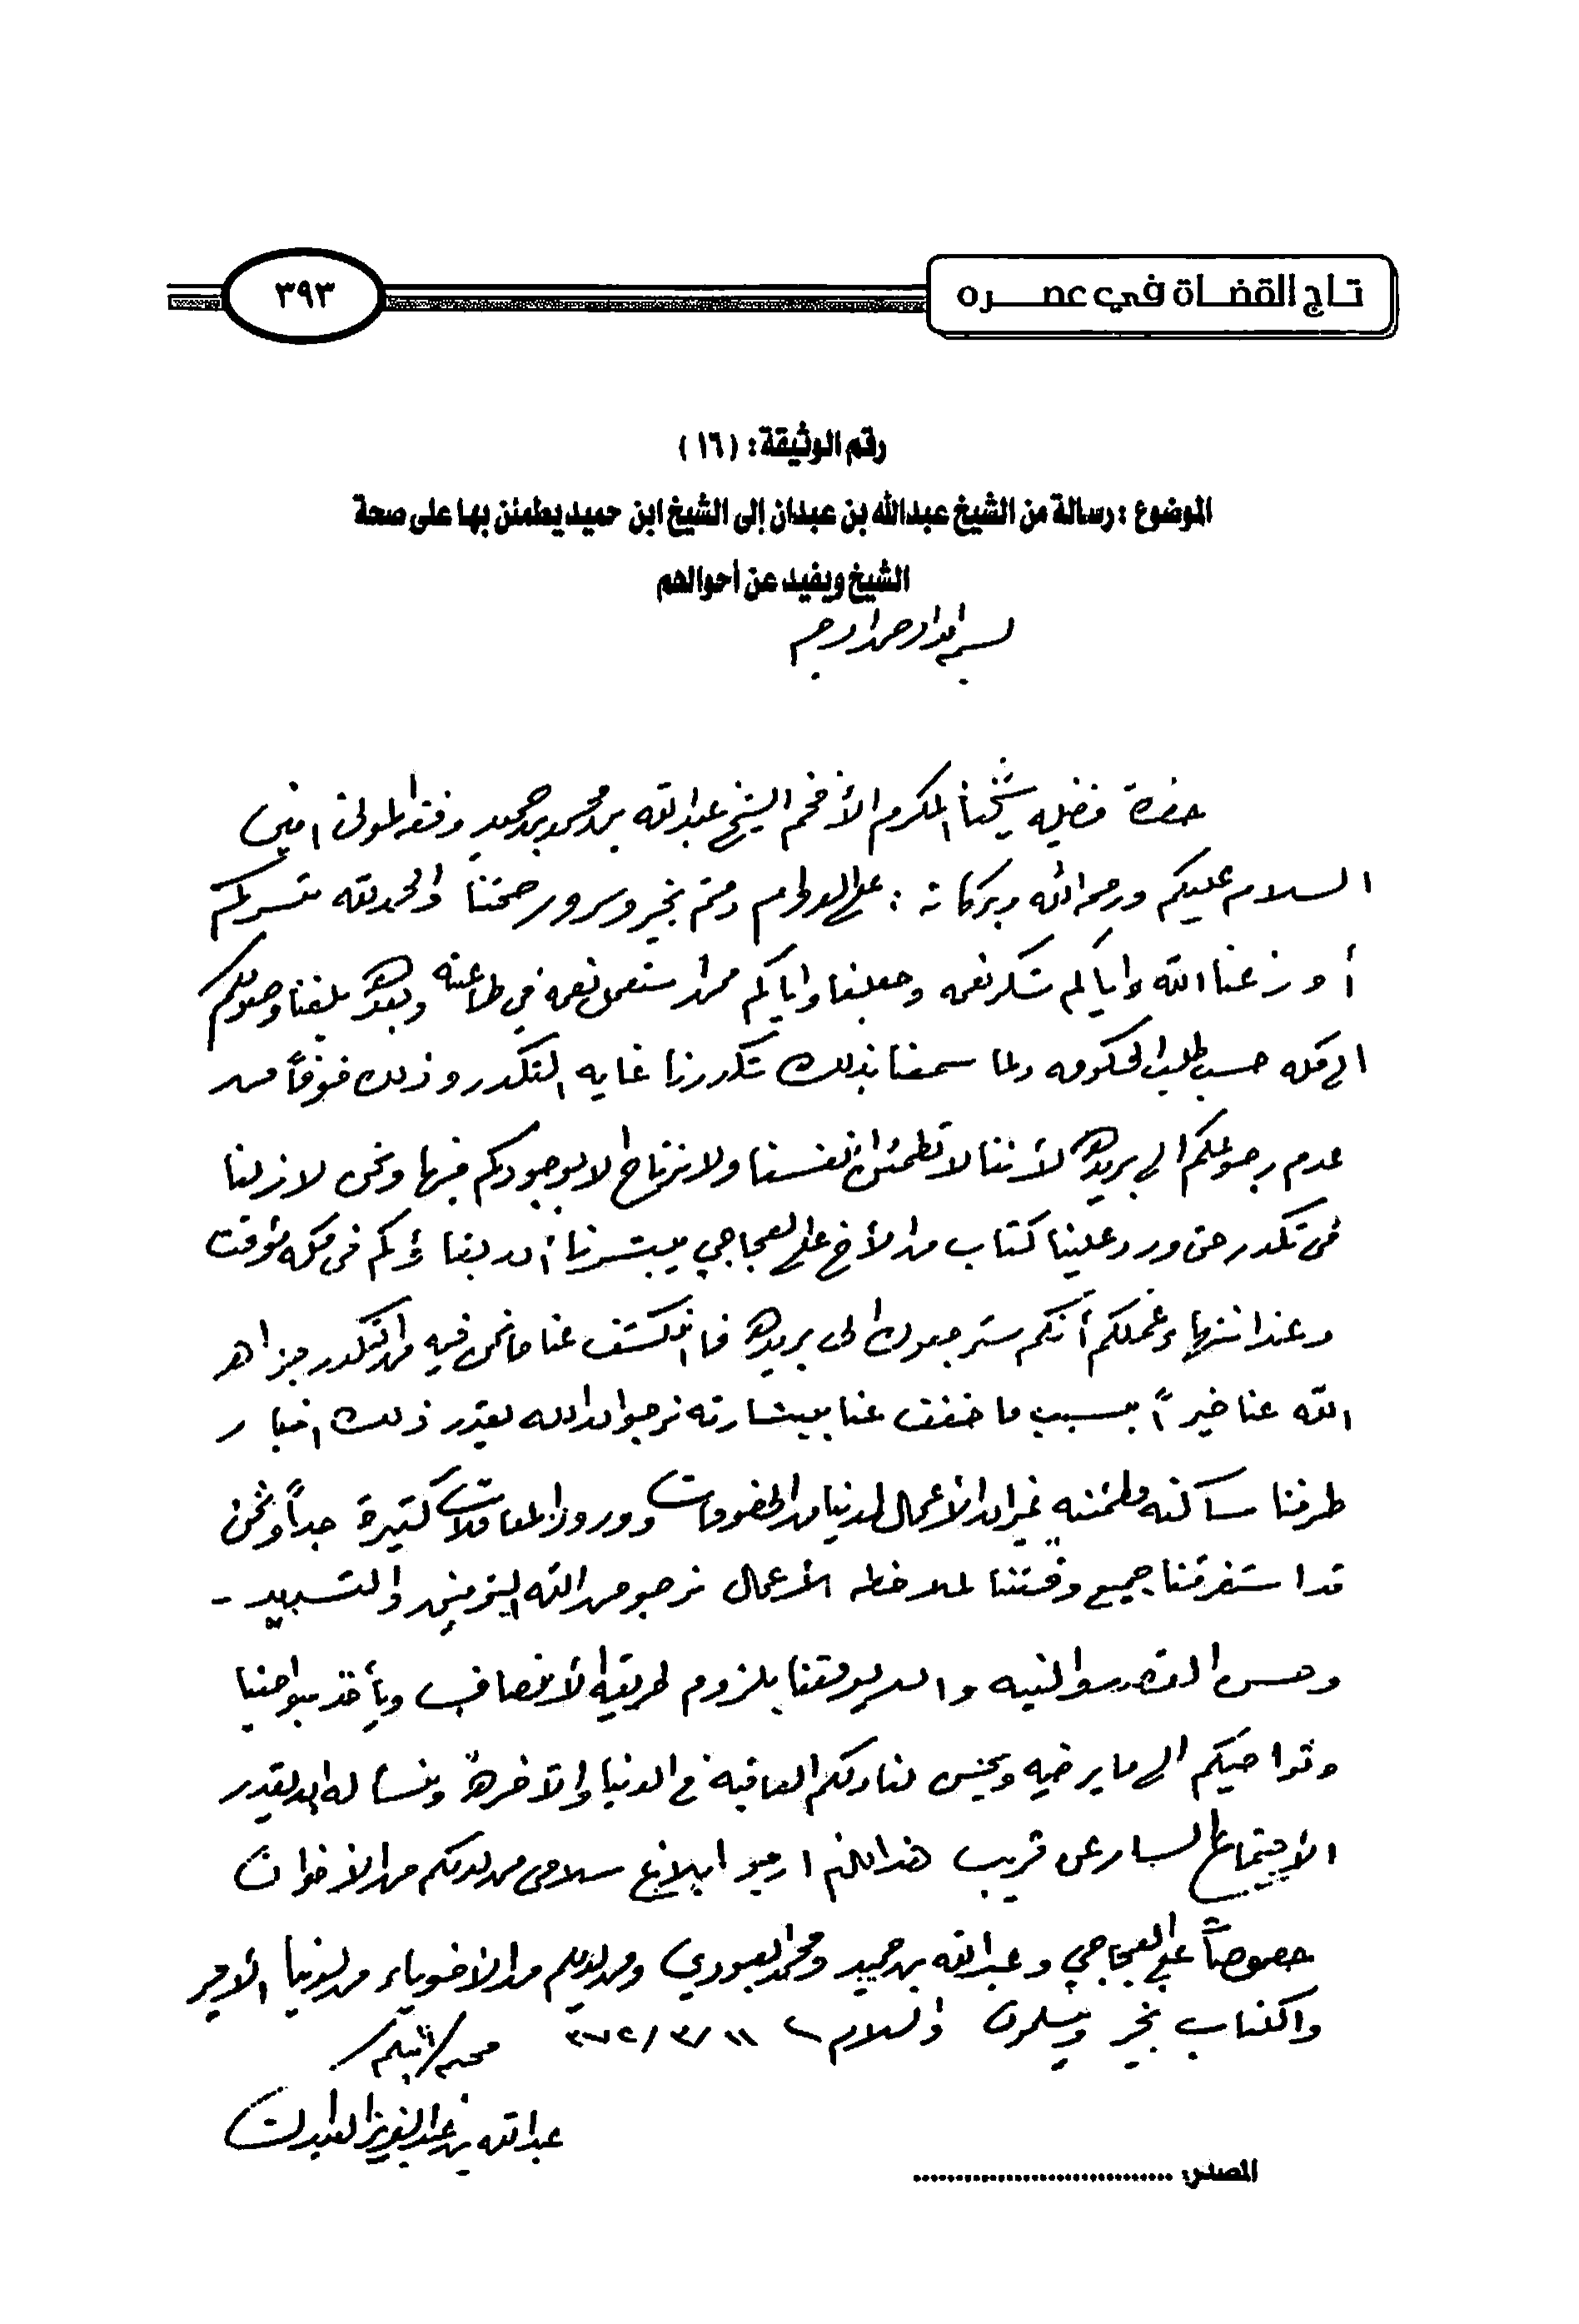 تاج القضاة في عصره
٣٩٣
رقم الوثيقة: (١٦)
الموضوع: رسالة من الشيخ عبدالله بن عبدان إلى الشيخ ابن حميد يطمئن بها على صحة
الشيخ ويفيد عن أحوالهم
بسم الله الرحمن الرحيم
حضرة فضيلة شيخنا المكرم الأفخم الشيخ عبدالله بن محمد بن حميد وفقه المولى امين
السلام عليكم ورحمة الله وبركاته : على الدوام دمتم بخير وسرور صحتنا والحمدلله تسركم
أوزعنا الله واياكم شكر نعمه وجعلنا واياكم ممن استعمل نعمه في طاعته وبعده بلغنا وصولكم
الى مكه حسب طلب الحكومه ولما سمعنا بذلك تكدرنا غايه التكدر وذلك خوفاً من
عدم رجوعكم الى بريده لأننا لا تطمئن انفسنا ولا نرتاح الا بوجودكم فيها ونحن لازلنا
في تكدر حتى ورد علينا كتاب من الأخ علي العجاجي يبشرنا أن بقاءكم في مكه مؤقت
وعند انتهاء عملكم أنكم سترجعون الى بريده فانكشف عنا ما نحن فيه من التكدر جزاه
الله عنا خيراً بسبب ما خفف عنا ببشارته نرجوا ان الله يقدر ذلك اخبار
طرفنا ساكنه مطمئنه غير ان الأعمال لدينا من الخصومات وورود المعاملات كثيرة جداً ونحن
قد استغرقنا جميع وقتنا لملاحظه الأعمال نرجو من الله التوفيق والتسديد -
وحسن القصد والنيه وان يوفقنا بلزوم طريقه الأنصاف ويأخذ بنواصينا
ونواصيكم الى ما يرضيه ويحسن لنا ولكم العاقبه في الدنيا والآخره ونسأله ان يقدر
الأجتماع السار عن قريب هذا مالزم ارجو ابلاغ سلامي من لديكم من الأخوان
خصوصاً علي العجاجي وعبدالله بن حميد ومحمد العبودي ومن لديكم من الأخوياء من لدينا الأمير
والكتاب بخير ويسلمون والسلام ١١/٣/٣٧٢
محبكم/ابنكم/
عبدالله بن عبدالعزيز العبدان
المصدر: ................................